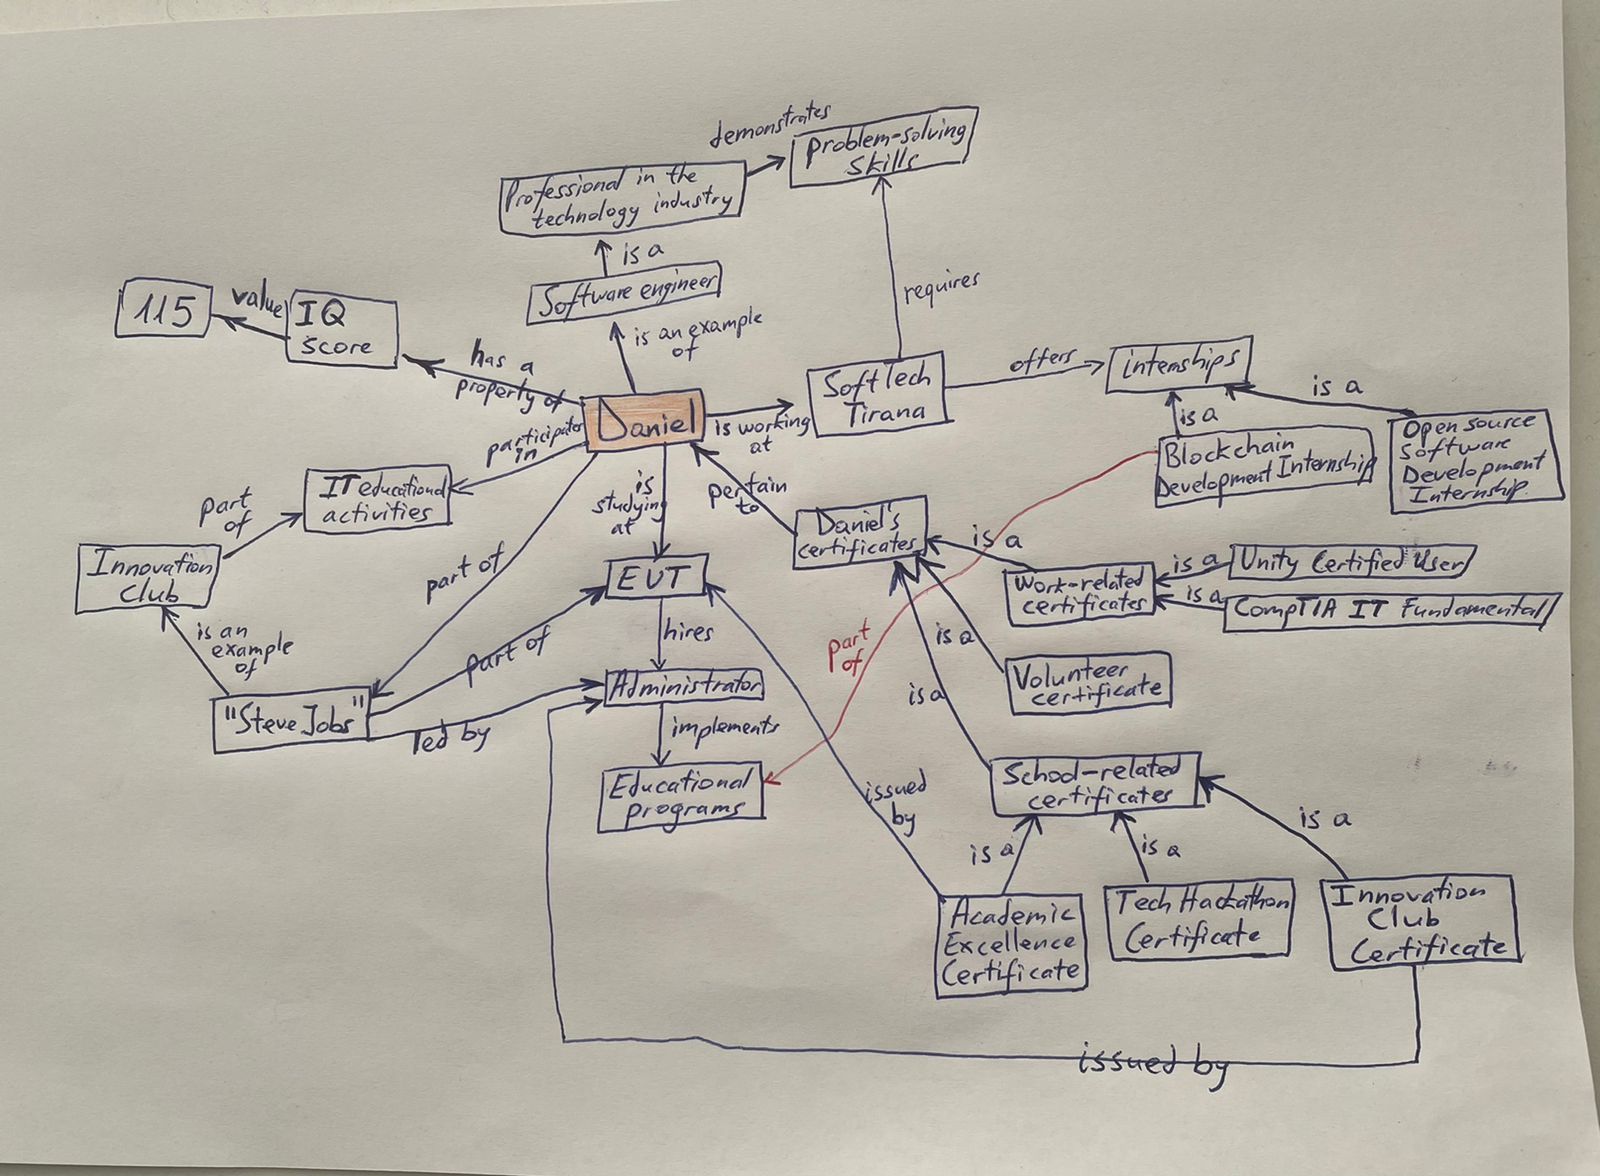 demonstrates
Problem-solving
Skills
Professional in the
technology industry
is a
Software engineer
requires
115
value
IQ
Score
is an example
of
has a
property of
SoftTech
Tirana
offers
internships
is a
is a
Daniel
is working
at
participates
in
Blockchain
Development Internship
Open source
Software
Development
Internship
IT educational
activities
part
of
is
studying
at
pertain
to
Daniel's
certificates
is a
Innovation
Club
part of
EUT
Work-related
certificates
is a
Unity Certified User
is a
CompTIA IT Fundamental
is an
example
of
hires
part
of
is a
part of
Volunteer
certificate
is a
"Steve Jobs"
Administrator
led by
implements
Educational
programs
issued
by
School-related
certificates
is a
is a
is a
Academic
Excellence
Certificate
Tech Hackathon
Certificate
Innovation
Club
Certificate
issued by